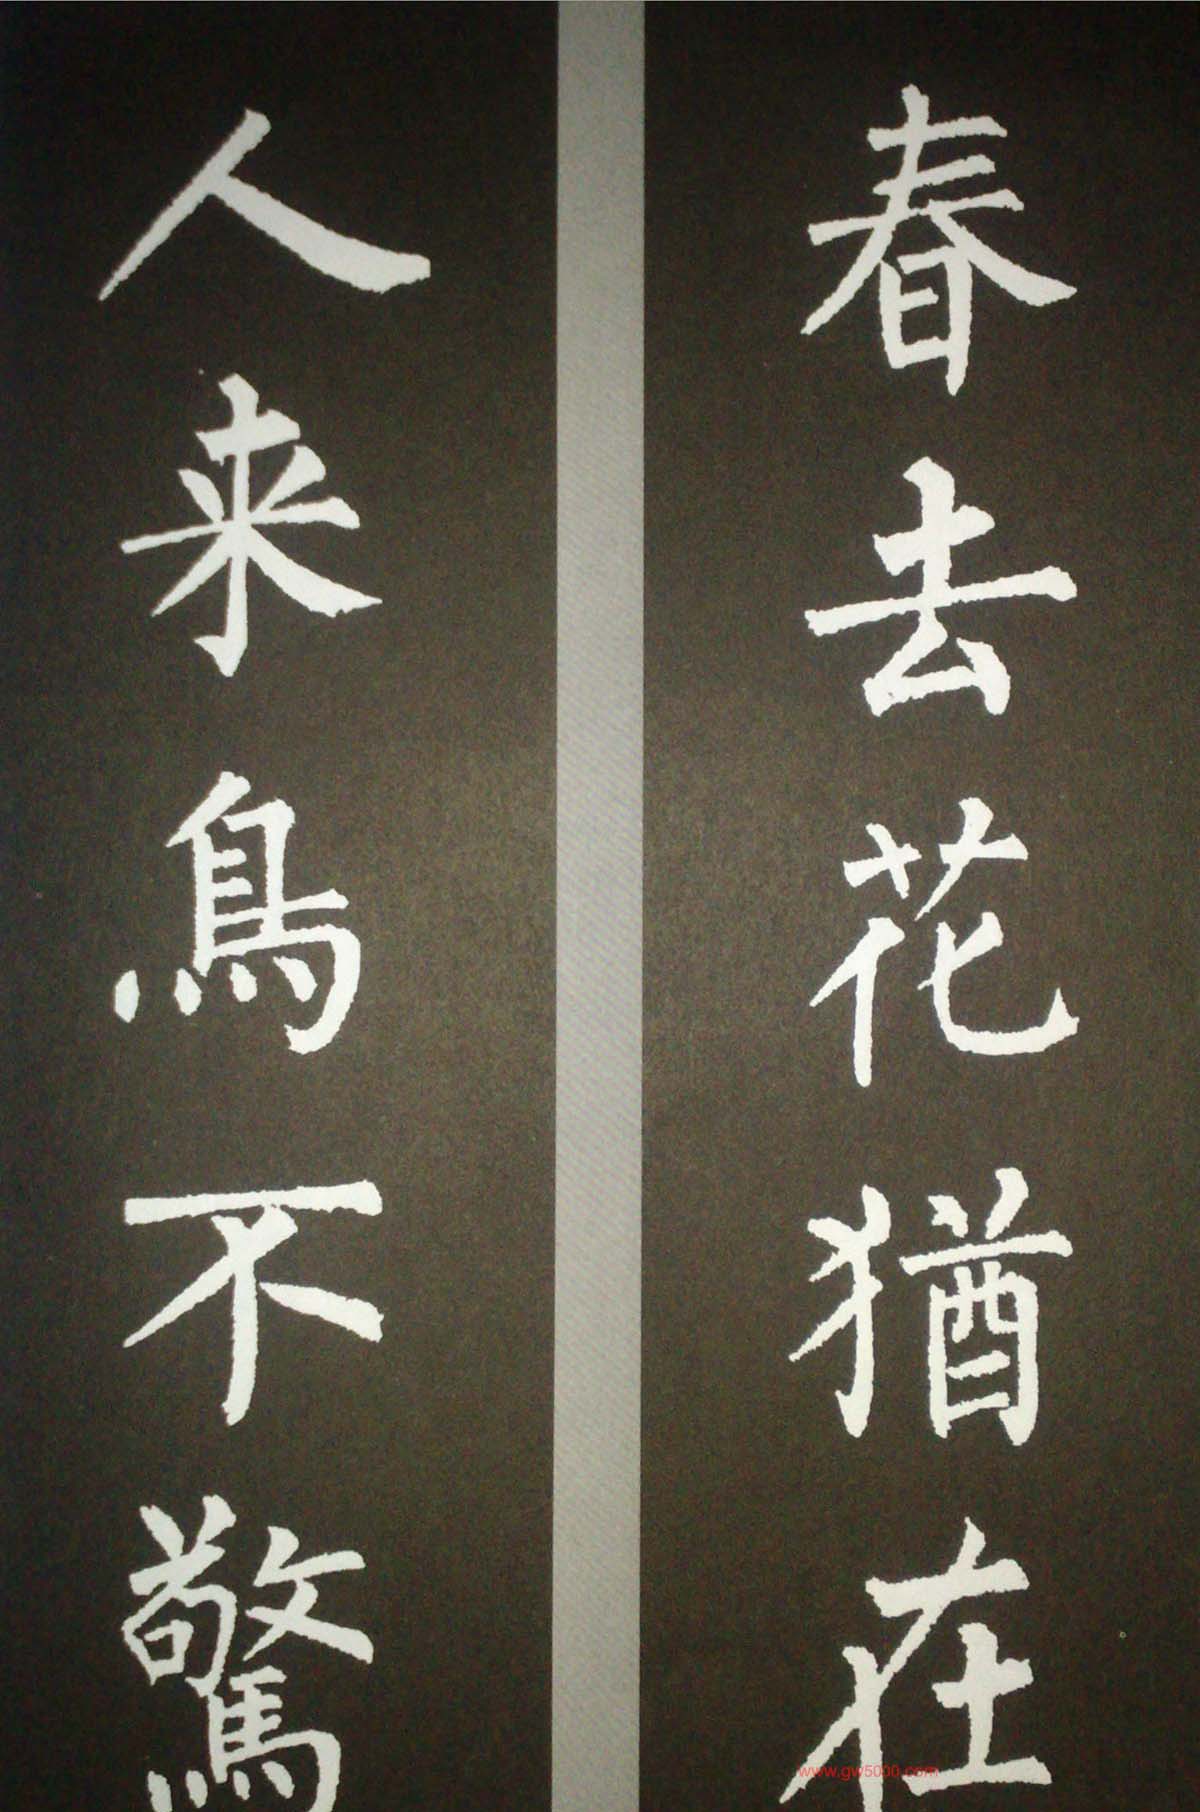 春去花猶在
人来鳥不驚
www.gw5000.com